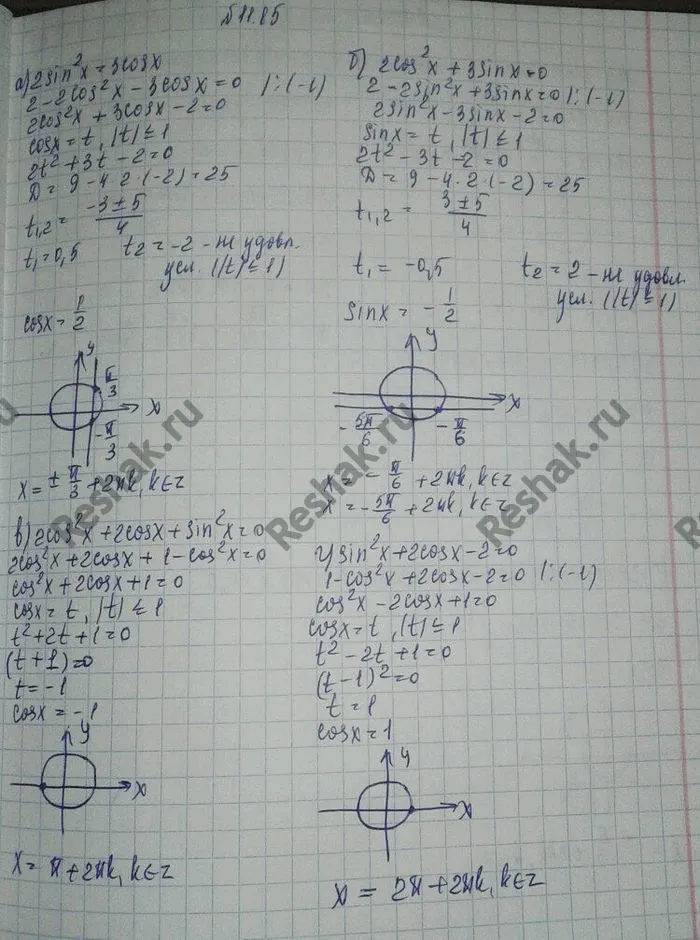 №11.85
а) 2sin²x = 3cosx
2 - 2cos²x - 3cosx = 0 |:(-1)
2cos²x + 3cosx - 2 = 0
cosx = t, |t| ≤ 1
2t² + 3t - 2 = 0
D = 9 - 4·2·(-2) = 25
t₁,₂ = (-3±5)/4
t₁ = 0,5 t₂ = -2 - не удовл.
усл. (|t| ≤ 1)
cosx = 1/2
y
π/3
x
-π/3
x = ± π/3 + 2πk, k∈z
б) 2cos²x + 3sinx = 0
2 - 2sin²x + 3sinx = 0 |:(-1)
2sin²x - 3sinx - 2 = 0
sinx = t, |t| ≤ 1
2t² - 3t - 2 = 0
D = 9 - 4·2·(-2) = 25
t₁,₂ = (3±5)/4
t₁ = -0,5 t₂ = 2 - не удовл.
усл. (|t| ≤ 1)
sinx = - 1/2
y
x
-5π/6 -π/6
x = - π/6 + 2πk, k∈z
x = - 5π/6 + 2πk, k∈z
в) 2cos²x + 2cosx + sin²x = 0
2cos²x + 2cosx + 1 - cos²x = 0
cos²x + 2cosx + 1 = 0
cosx = t, |t| ≤ 1
t² + 2t + 1 = 0
(t + 1) = 0
t = -1
cosx = -1
y
x
x = π + 2πk, k∈z
г) sin²x + 2cosx - 2 = 0
1 - cos²x + 2cosx - 2 = 0 |:(-1)
cos²x - 2cosx + 1 = 0
cosx = t, |t| ≤ 1
t² - 2t + 1 = 0
(t - 1)² = 0
t = 1
cosx = 1
y
x
x = 2π + 2πk, k∈z
Reshak.ru
Reshak.ru
Reshak.ru